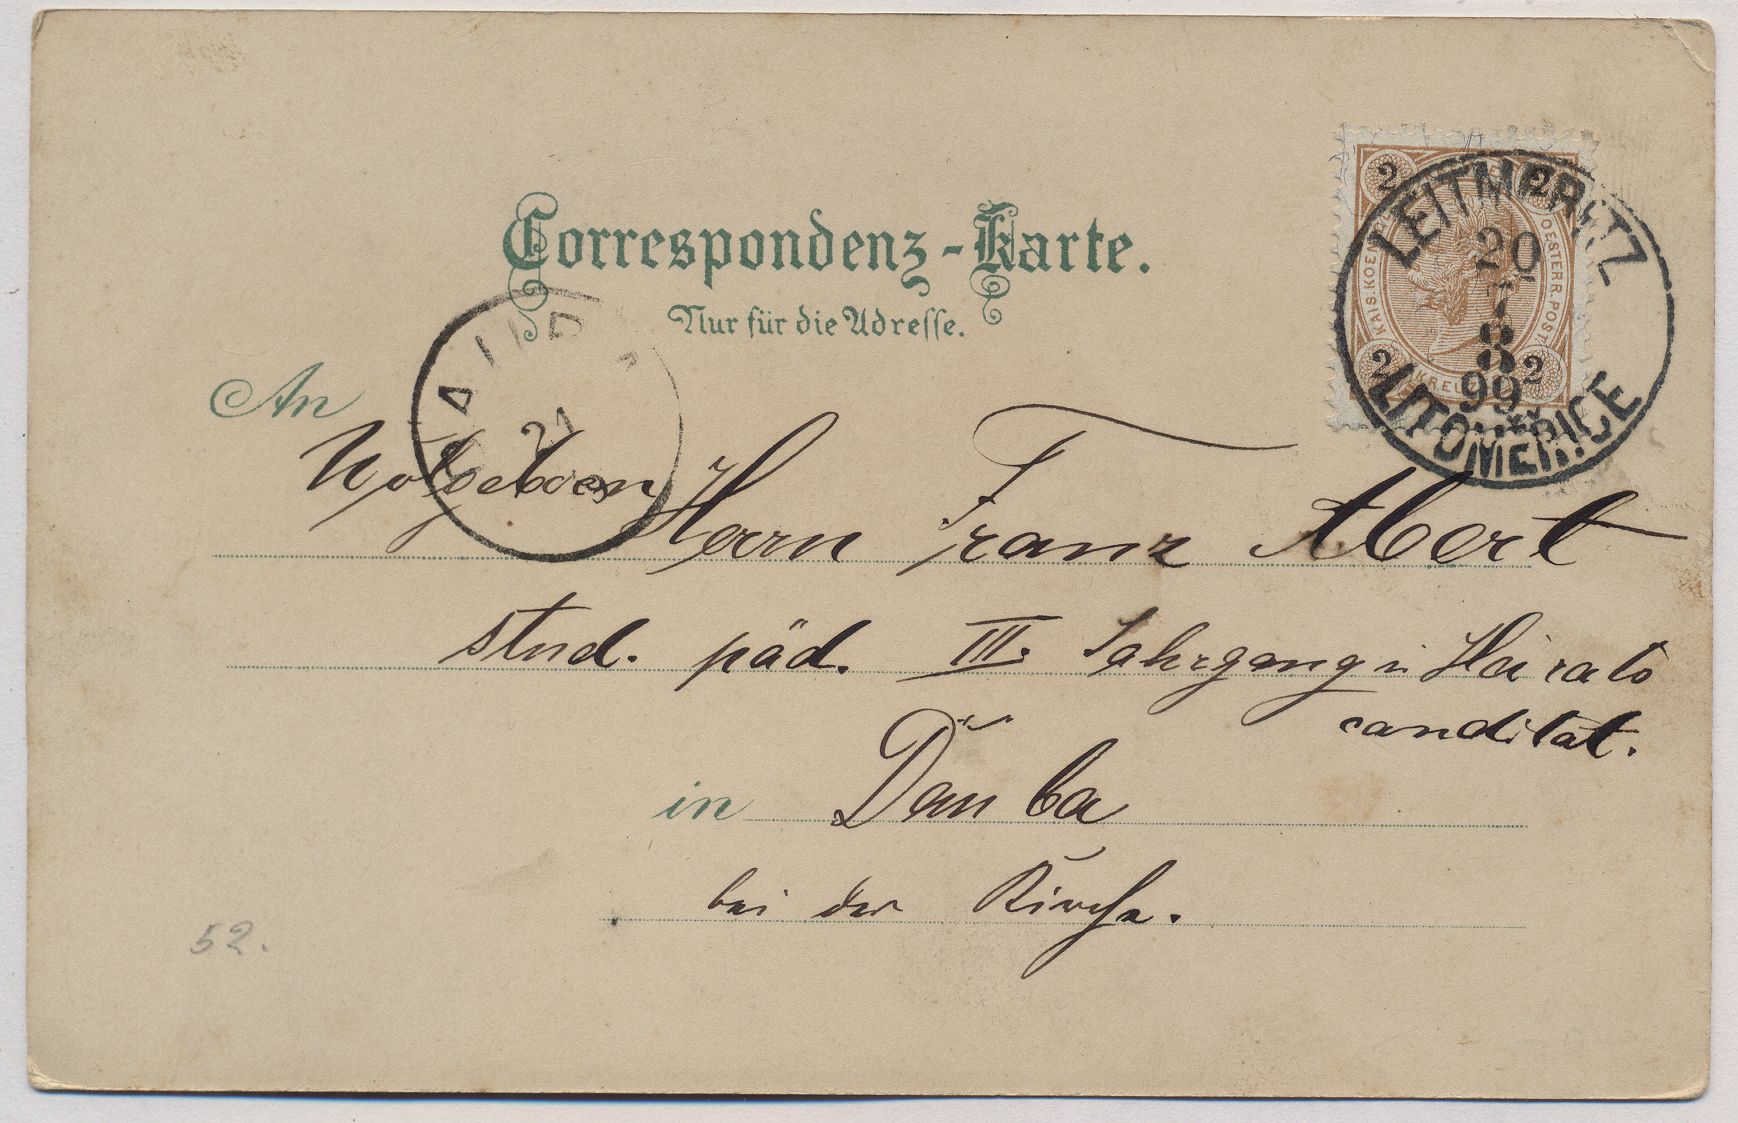 Correspondenz-Karte.
Nur für die Adresse.
2 2
KAIS. KOE OESTERR. POST.
2 KREUZ 2
LEITMERITZ
20
7
8
99
LITOMĚŘICE
DAUB
21
An
Wolgeboren Herrn Franz Albert
stud. päd. III. Jahrgang u Heirats
canditat.
in Dauba
bei der Kirche.
52.